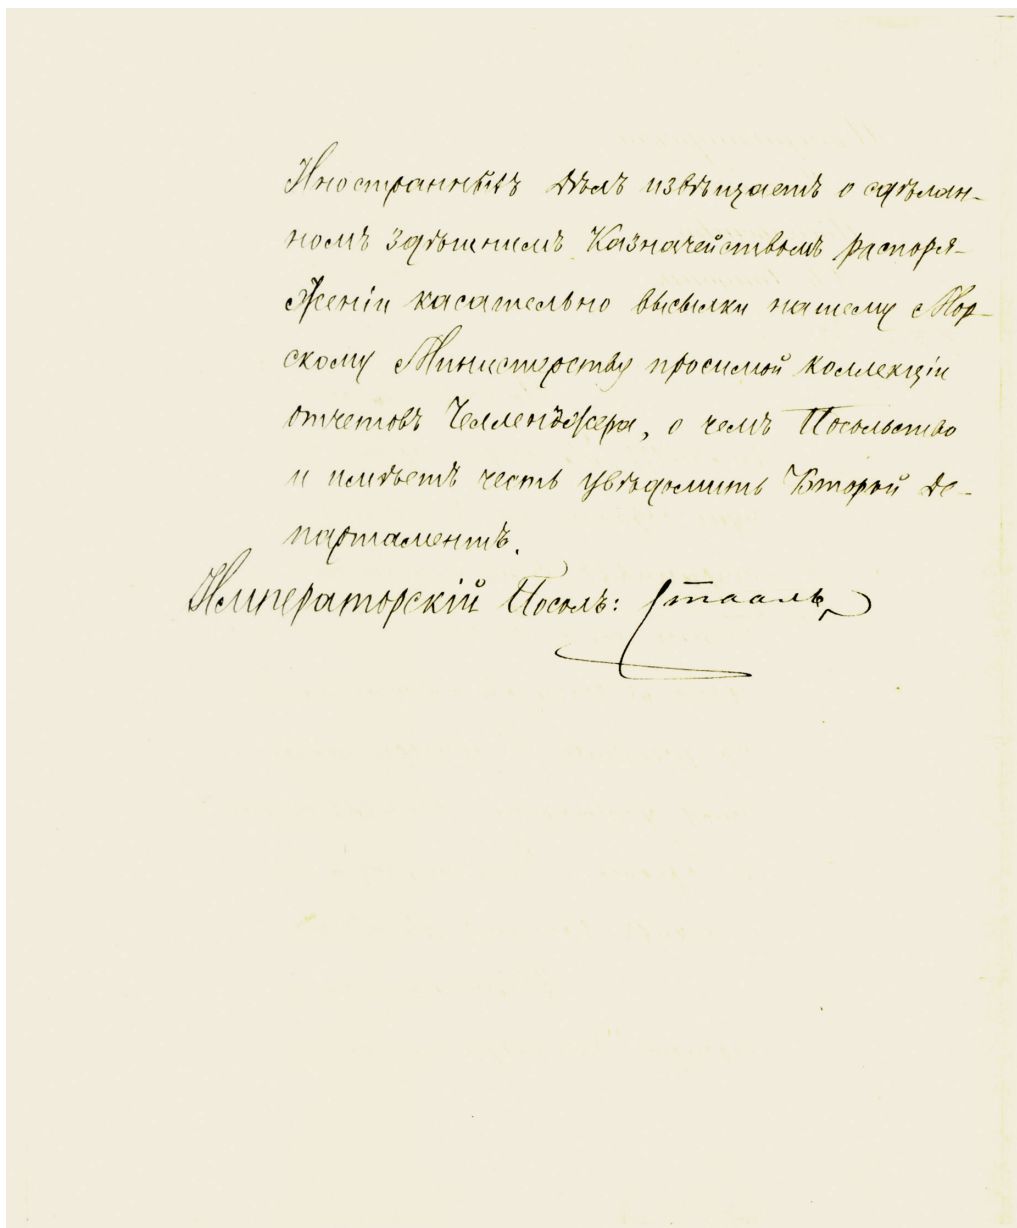 Иностранныхъ Дѣлъ извѣщаетъ о сдѣлан-
номъ здѣшнимъ Казначействомъ распоря-
женіи касательно высылки нашему Мор-
скому Министерству просимой коллекціи
отчетовъ Челленджера, о чемъ Посольство
и имѣетъ честь увѣдомить Второй Де-
партаментъ.
Императорскій Посолъ: Стааль